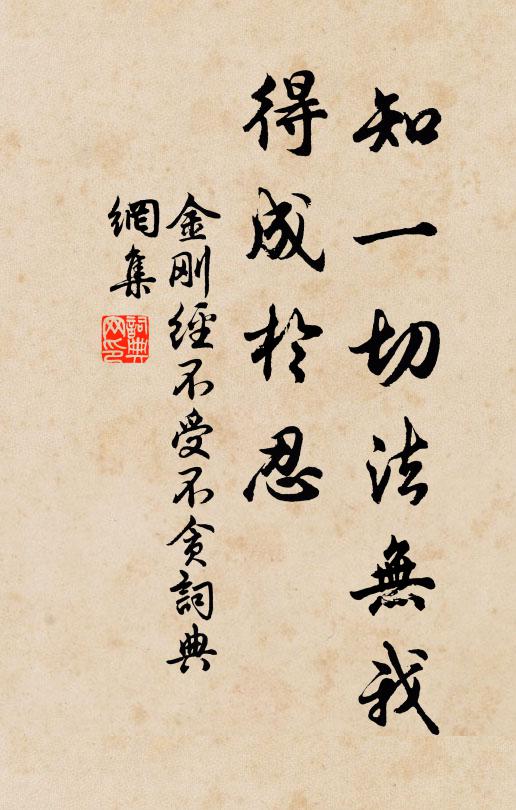 知一切法無我
得成於忍
金剛經不受不貪詞典
網集
詞典
网印